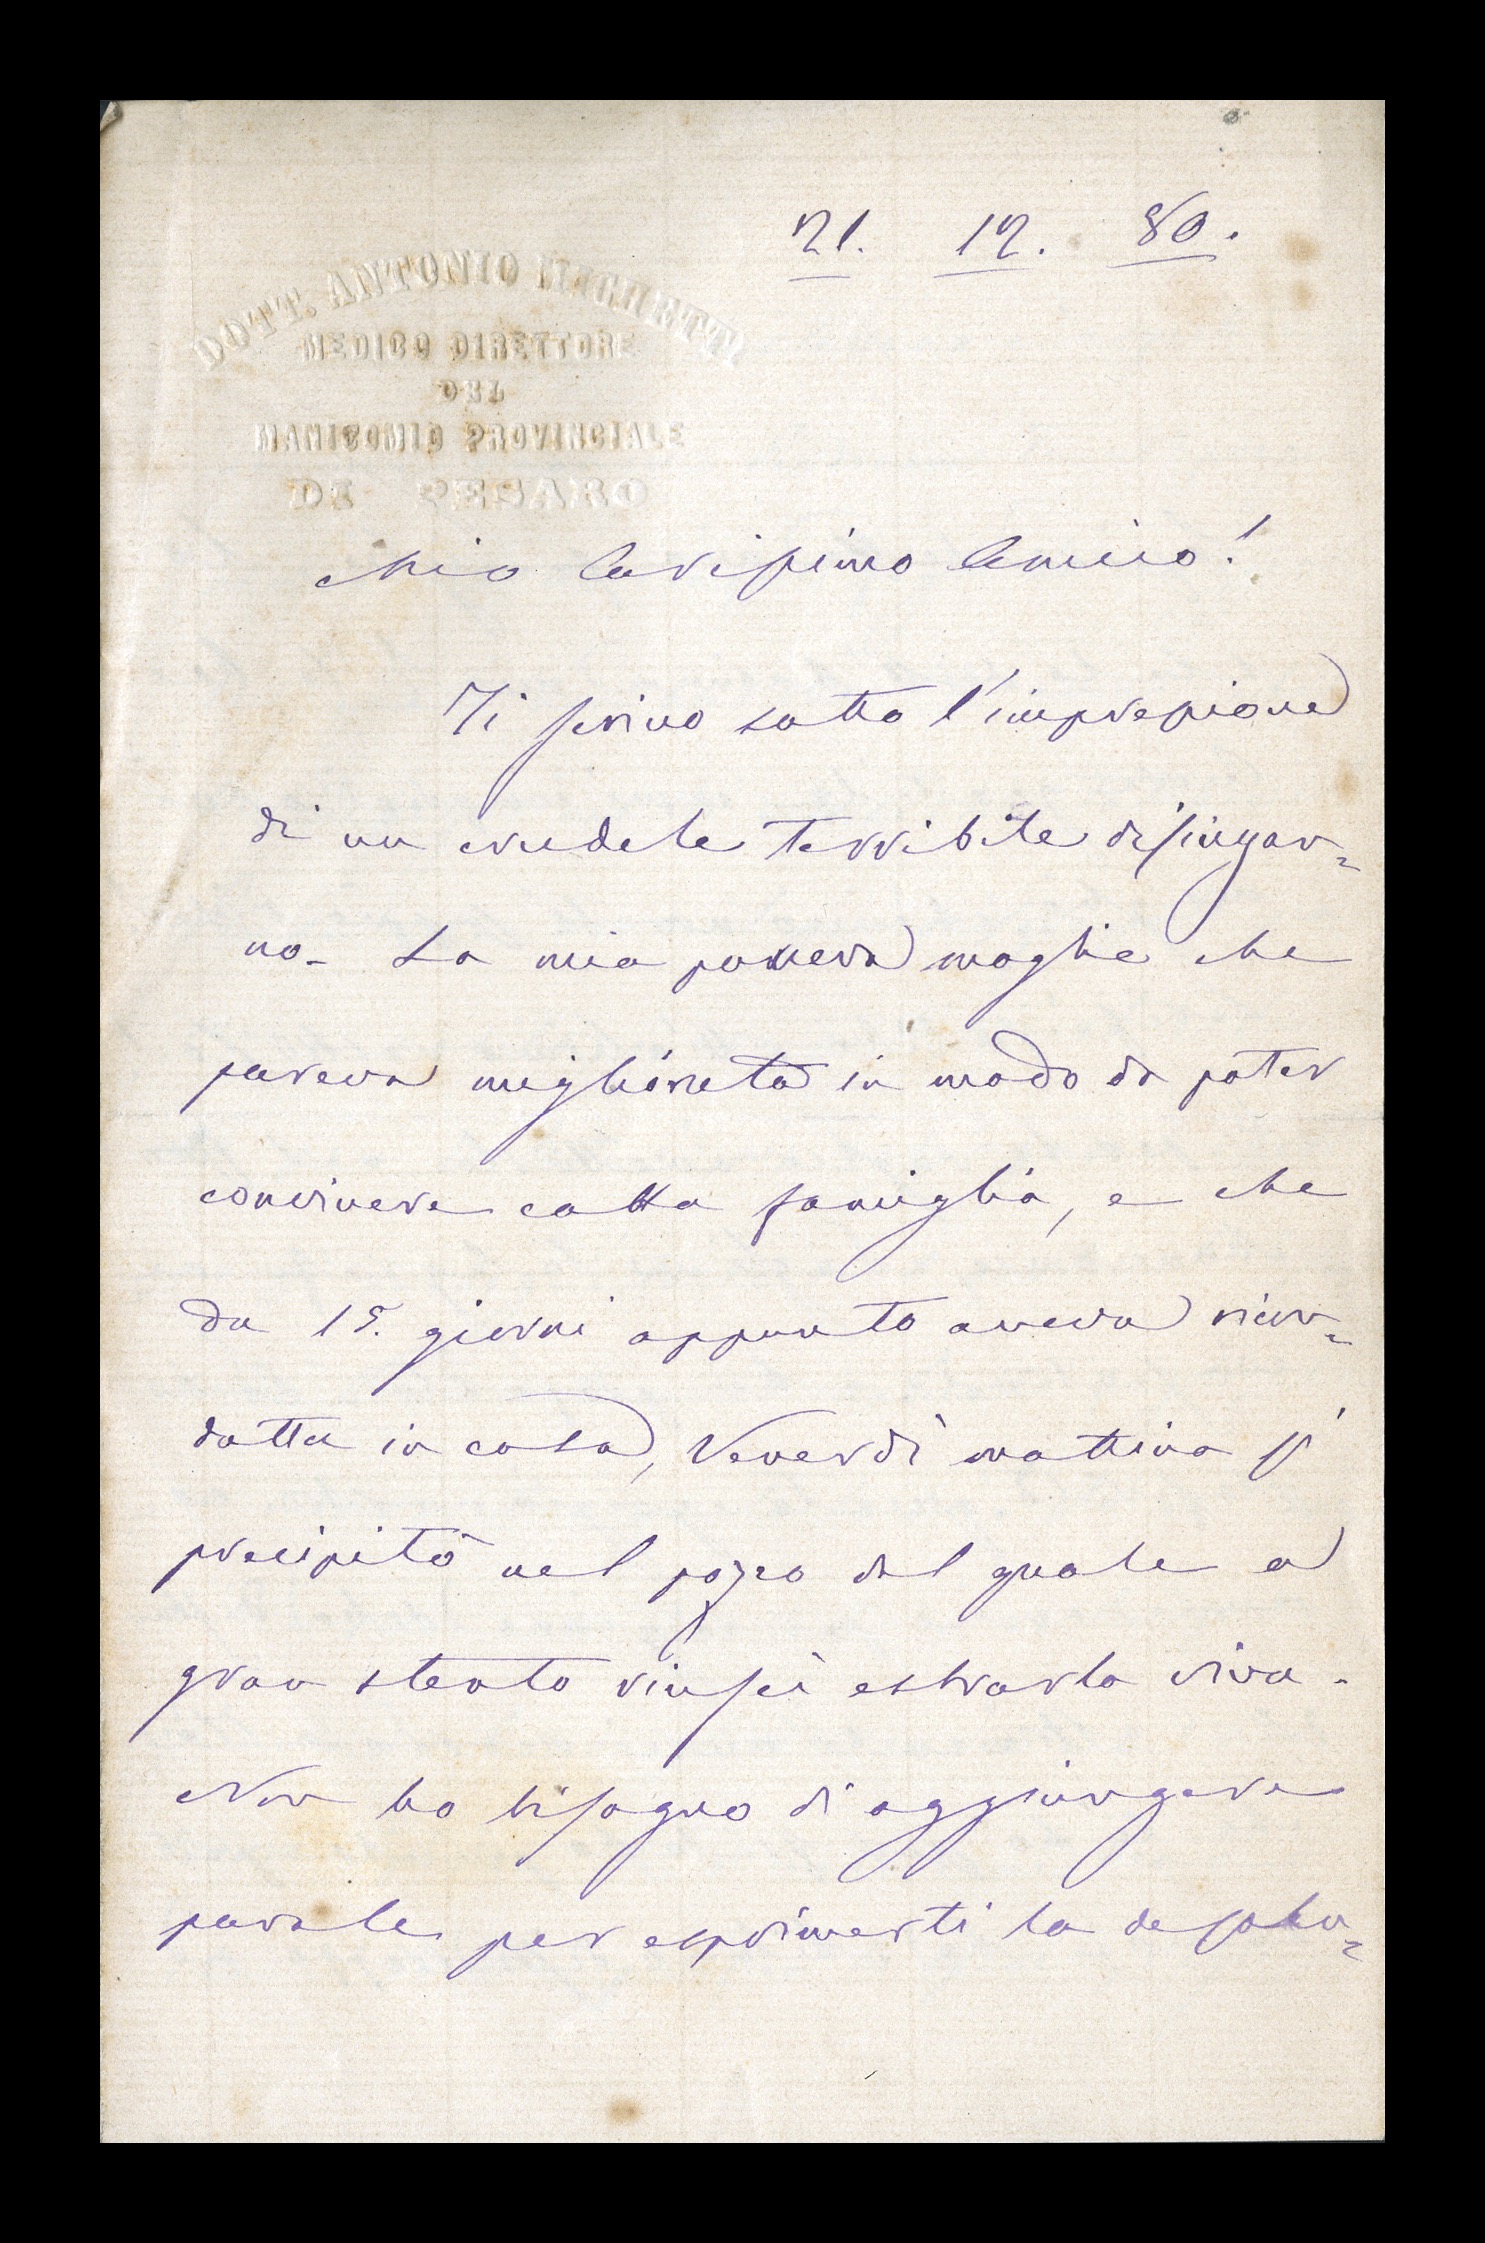 21. 12. 80.
DOTT. ANTONIO MICHETTI
MEDICO DIRETTORE
DEL
MANICOMIO PROVINCIALE
DI PESARO
Mio Carissimo Amico!
Ti scrivo sotto l'impressione
di un crudele terribile disingan=
no_ La mia povera moglie che
pareva migliorata in modo da poter
convivere colla famiglia, e che
da 15. giorni appunto aveva ricon=
dotta in casa, Venerdì mattina si
precipitò nel pozzo dal quale a
gran stento riuscì estrarla viva.
Non ho bisogno di aggiungere
parole per esprimerti la desola=